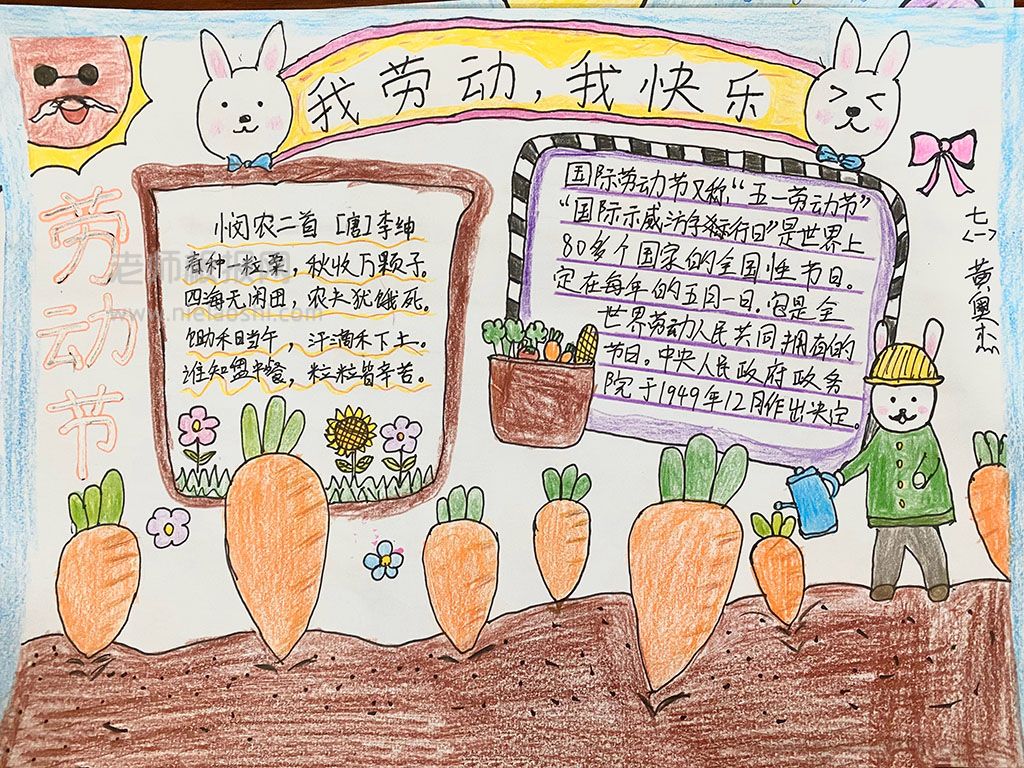 我劳动，我快乐
劳动节
悯农二首 [唐]李绅
春种一粒粟，秋收万颗子。
四海无闲田，农夫犹饿死。
锄禾日当午，汗滴禾下土。
谁知盘中餐，粒粒皆辛苦。
国际劳动节又称“五一劳动节”
“国际示威游行日”是世界上
80多个国家的全国性节日。
定在每年的五月一日。它是全
世界劳动人民共同拥有的
节日。中央人民政府政务
院于1949年12月作出决定。
七〈一〉 黄奥杰
老师板报网
www.nicelaoshi.com